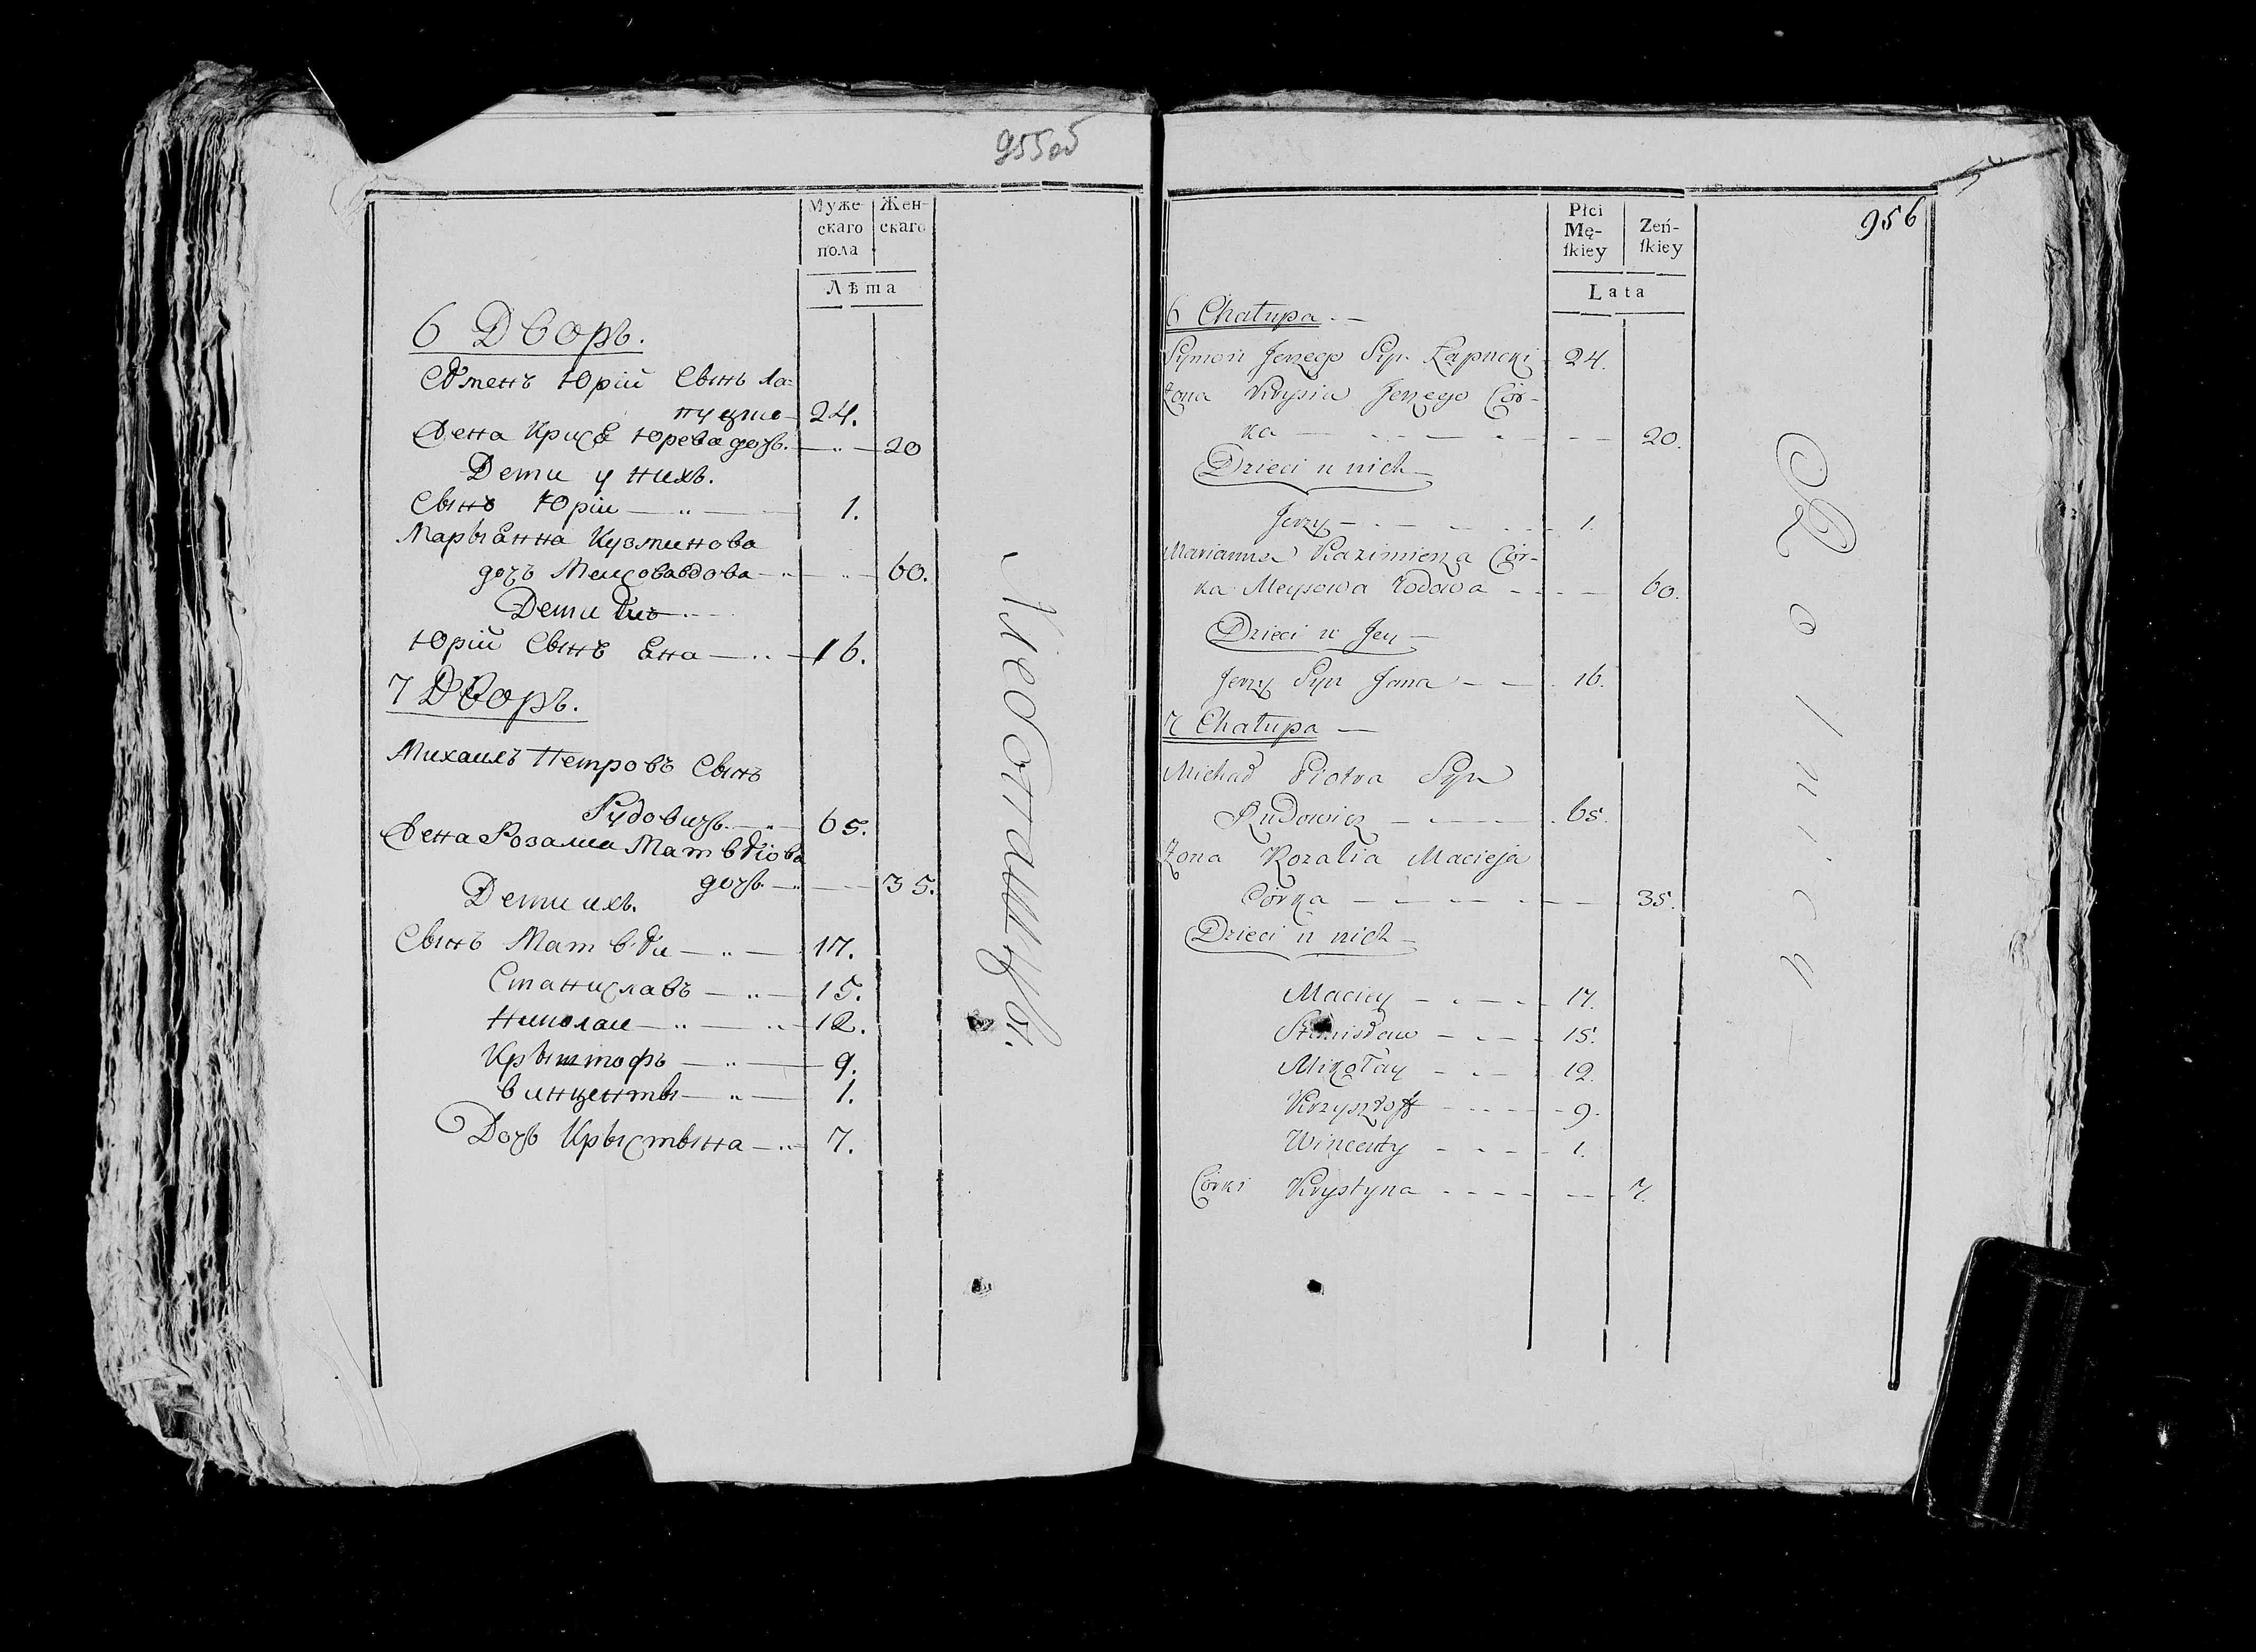 955об
Муже-
скаго
пола
Жен-
скаго
Лѣта
6 Дворъ.
Сѣменъ Юрій Сынъ Ла=
пуцке 24.
Жена Крися Юрева дочь. 20
Дети у нихъ.
Сынъ Юріи 1.
Марыанна Кузминова
дочъ 60.
Дети
Юрій Сынъ Яна 16.
7 Дворъ.
Михаилъ Петровъ Сынъ
Рудовичъ 65.
Жена Розалиа Матвѣюва
дочь 35.
Дети ихъ.
Сынъ Матвѣи 17.
Станиславъ 15.
Николаи 12.
Крыштофъ 9.
Винценты 1.
Дочь Крыстына 7.
Хлебопашцы.
956
Płci
Mę-
ſkiey
Zeń-
ſkiey
Lata
6 Chałupa
Symon Jerzego Syn Łapucki 24.
Żona Krysia Jerzego Cór-
ka 20.
Dzieci u nich
Jerzy 1.
Marianna Kazimierza Cór-
ka Meysowa Wdowa 60.
Dzieci u Jey
Jerzy Syn Jana 16.
7 Chałupa
Michał Piotra Syn
Rudowicz 65.
Żona Rozalia Macieja
Córka 35.
Dzieci u nich
Maciey 17.
Stanisław 15.
Mikołay 12.
Krzysztoff 9.
Wincenty 1.
Córki Krystyna 7.
Rolnicy